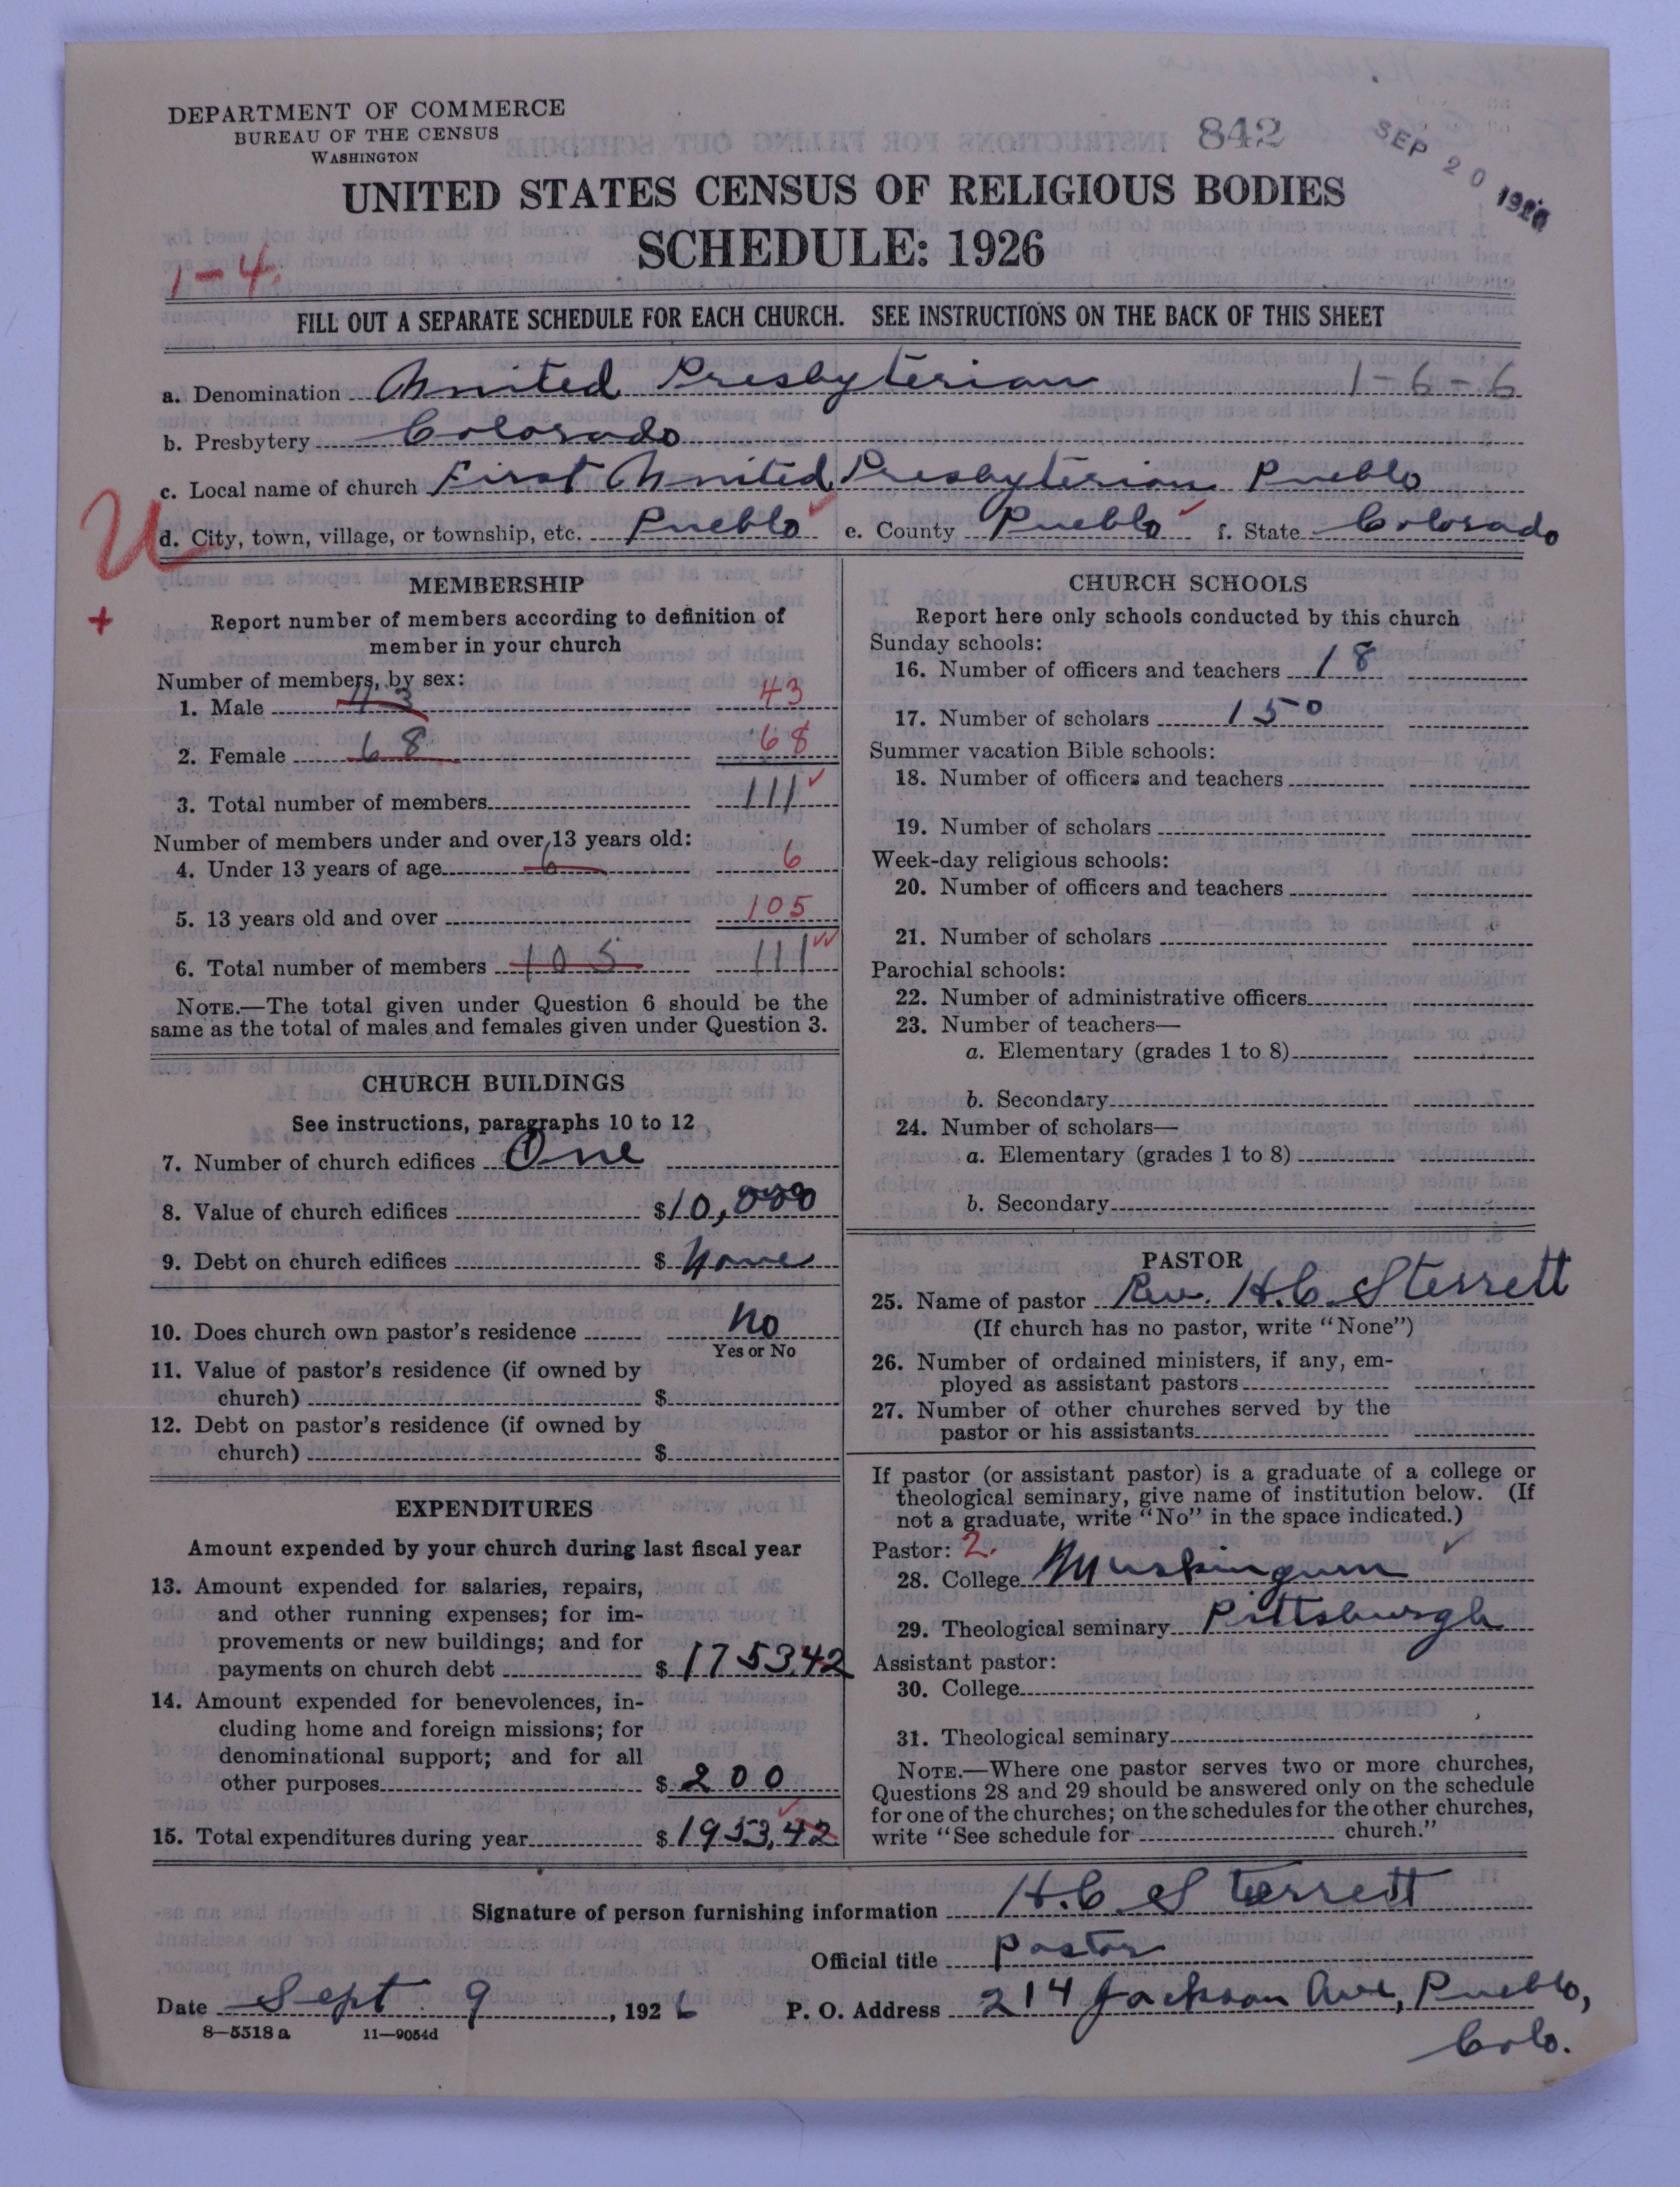 DEPARTMENT OF COMMERCE
BUREAU OF THE CENSUS
WASHINGTON
842
SEP 20 1926
UNITED STATES CENSUS OF RELIGIOUS BODIES
SCHEDULE: 1926
1-4.
FILL OUT A SEPARATE SCHEDULE FOR EACH CHURCH. SEE INSTRUCTIONS ON THE BACK OF THIS SHEET
a. Denomination United Presbyterian 1-6-6
b. Presbytery Colorado
c. Local name of church First United Presbyterian Pueblo
U
d. City, town, village, or township, etc. Pueblo e. County Pueblo f. State Colorado
+
MEMBERSHIP
Report number of members according to definition of
member in your church
Number of members, by sex:
1. Male 43 43
2. Female 68 68
3. Total number of members 111
Number of members under and over 13 years old:
4. Under 13 years of age 6 6
5. 13 years old and over 105
6. Total number of members 105 111
NOTE.—The total given under Question 6 should be the
same as the total of males and females given under Question 3.
CHURCH BUILDINGS
See instructions, paragraphs 10 to 12
7. Number of church edifices One
8. Value of church edifices $10,000
9. Debt on church edifices $ None
10. Does church own pastor's residence No
Yes or No
11. Value of pastor's residence (if owned by
church) $
12. Debt on pastor's residence (if owned by
church) $
EXPENDITURES
Amount expended by your church during last fiscal year
13. Amount expended for salaries, repairs,
and other running expenses; for im-
provements or new buildings; and for
payments on church debt $1753.42
14. Amount expended for benevolences, in-
cluding home and foreign missions; for
denominational support; and for all
other purposes $ 200
15. Total expenditures during year $1953.42
CHURCH SCHOOLS
Report here only schools conducted by this church
Sunday schools:
16. Number of officers and teachers 18
17. Number of scholars 150
Summer vacation Bible schools:
18. Number of officers and teachers
19. Number of scholars
Week-day religious schools:
20. Number of officers and teachers
21. Number of scholars
Parochial schools:
22. Number of administrative officers
23. Number of teachers—
a. Elementary (grades 1 to 8)
b. Secondary
24. Number of scholars—
a. Elementary (grades 1 to 8)
b. Secondary
PASTOR
25. Name of pastor Rev. H.C. Sterrett
(If church has no pastor, write "None")
26. Number of ordained ministers, if any, em-
ployed as assistant pastors
27. Number of other churches served by the
pastor or his assistants
If pastor (or assistant pastor) is a graduate of a college or
theological seminary, give name of institution below. (If
not a graduate, write "No" in the space indicated.)
Pastor: 2.
28. College Muskingum
29. Theological seminary Pittsburgh
Assistant pastor:
30. College
31. Theological seminary
NOTE.—Where one pastor serves two or more churches,
Questions 28 and 29 should be answered only on the schedule
for one of the churches; on the schedules for the other churches,
write "See schedule for church."
Signature of person furnishing information H.C. Sterrett
Official title Pastor
Date Sept 9, 1926 P. O. Address 214 Jackson Ave, Pueblo,
Colo.
8—5518 a 11—9054d